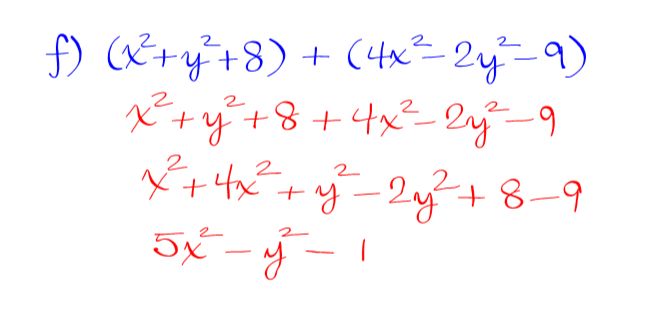 f) (x²+y²+8) + (4x²-2y²-9)
x²+y²+8+4x²-2y²-9
x²+4x²+y²-2y²+8-9
5x²-y²-1